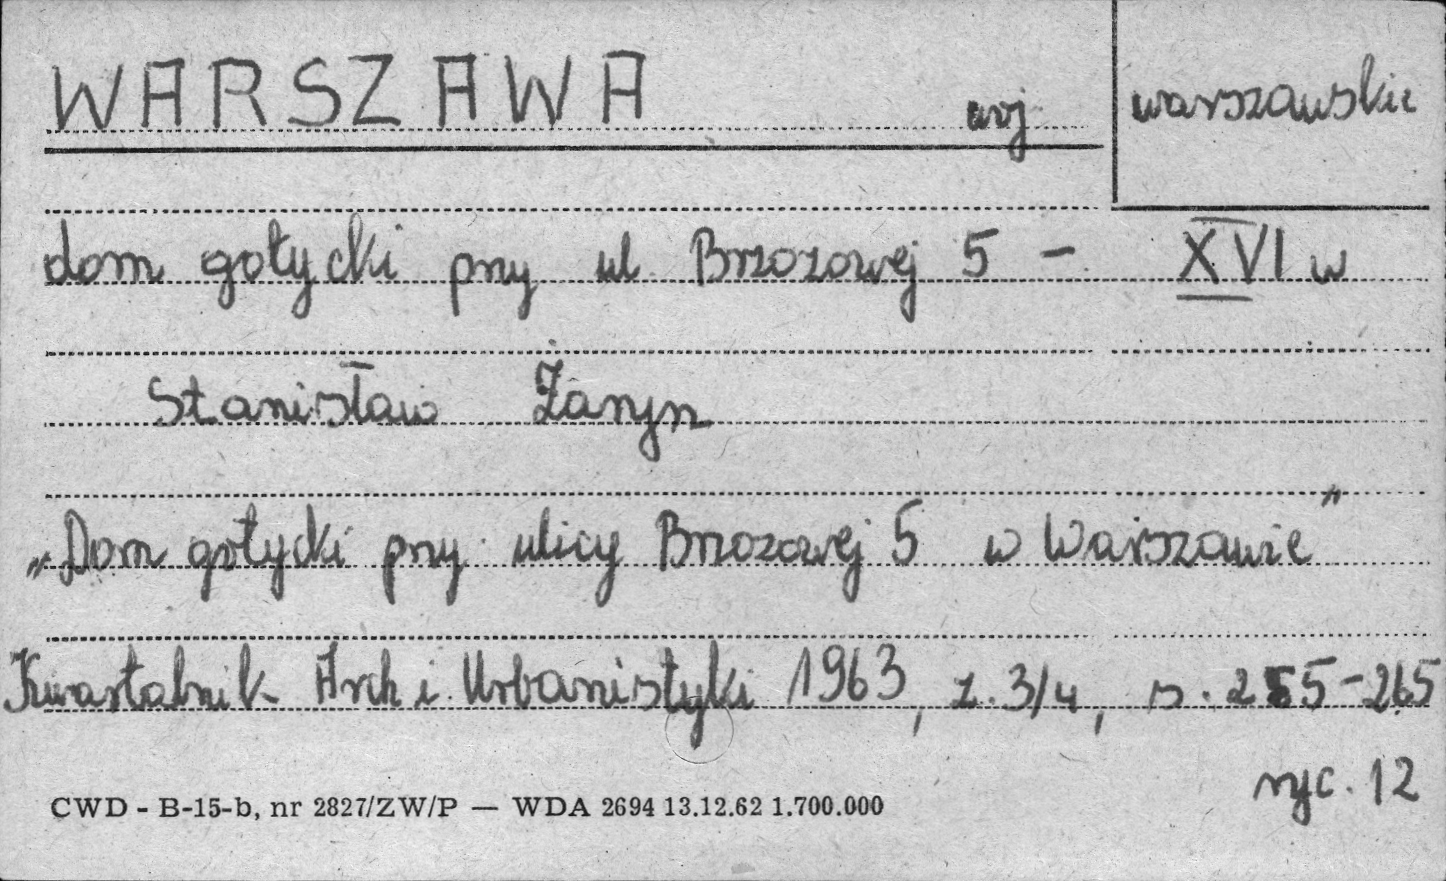 WARSZAWA woj warszawskie
dom gotycki przy ul Brzozowej 5 - XVI w
Stanisław Żaryn
„Dom gotycki przy ulicy Brzozowej 5 w Warszawie"
Kwartalnik Arch i Urbanistyki 1963, z. 3/4, s. 255-265
ryc. 12
CWD - B-15-b, nr 2827/ZW/P — WDA 2694 13.12.62 1.700.000